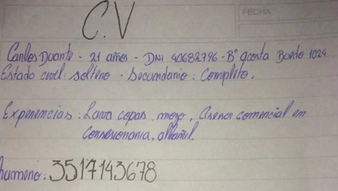 C.V
FECHA
Carlos Duarte - 21 años - DNI 40682796 - B° Acosta Bordo 1024
Estado civil: soltero - Secundario: Completo.
Experiencias: Lava copas, mozo, Asesor comercial en
Concesionaria, albañil.
numero: 3517143678